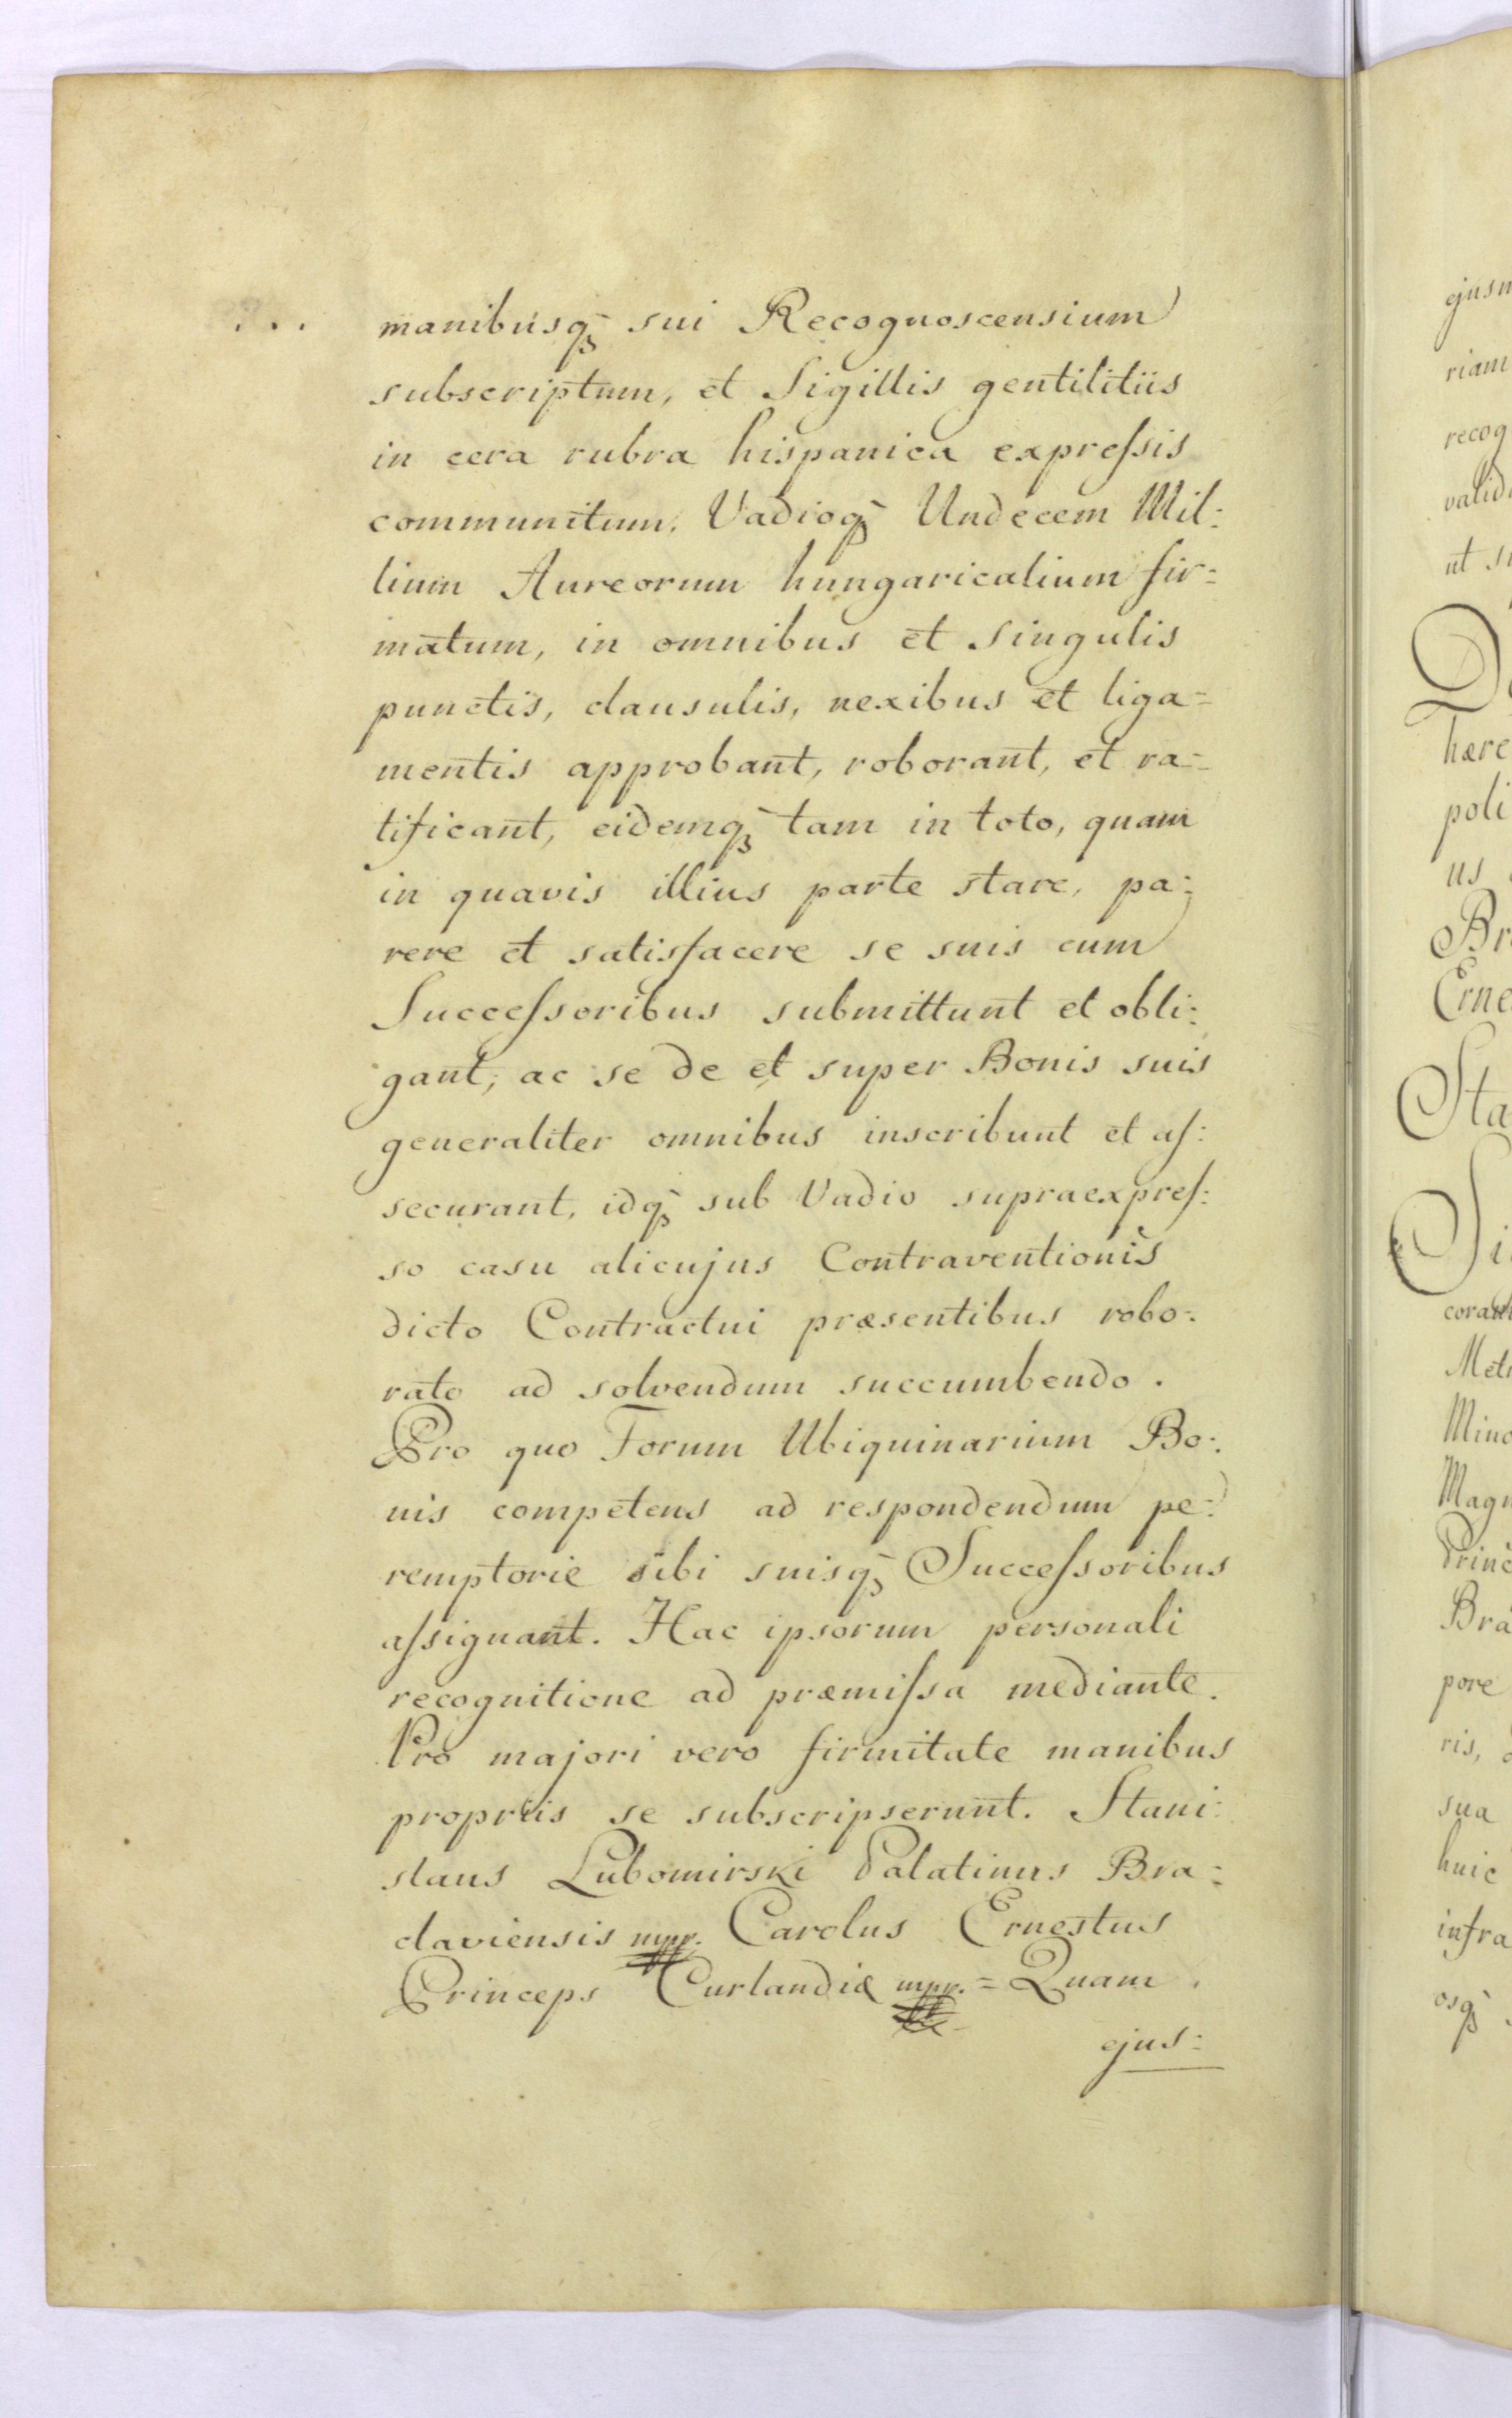 manibusq́ꝫ sui Recognoscensium
subscriptum, et Sigillis gentilitiis
in cera rubra hispanica expreſsis
communitum, Vadioqꝫ Undecem Mil:
lium Aureorum hungaricalium fir=
matum, in omnibus et Singulis
punctis, clausulis, nexibus et liga=
mentis approbant, roborant, et ra=
tificant, eidemqꝫ tam in toto, quam
in quavis illius parte stare, pa:
rere et satisfacere se suis cum
Succeſsoribus submittunt et obli:
gant; ac se de et super Bonis suis
generaliter omnibus inscribunt et aſ:
securant, idqꝫ sub Vadio supraexpreſ:
so casu alicujus Contraventionis
dicto Contractui præsentibus robo:
rato ad solvendum succumbendo.
Pro quo Forum Ubiquinarium Bo:
nis competens ad respondendum pe:
remptorie sibi suisqꝫ Succeſsoribus
aſsignant. Hac ipsorum personali
recognitione ad præmiſsa mediante.
Pro majori vero firmitate manibus
propriis se subscripserunt. Stani:
slaus Lubomirski Palatinus Bra=
claviensis mpp. Carolus Ernestus
Princeps Curlandiæ mpp. = Quam
ejus:
riam
recog
ut
hære
poli
us
Br
Erne
Sta
Mino
Magn
Bra
pore
ris,
sua
huic
infra
osqꝫ